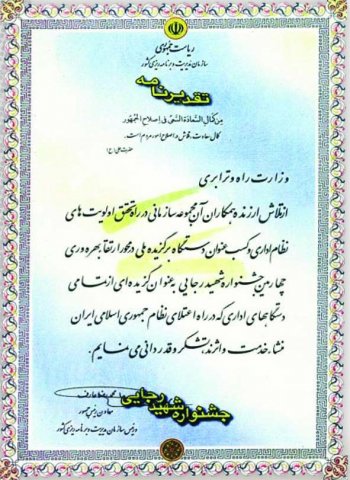 ریاست جمهوری
سازمان مدیریت و برنامه‌ریزی کشور
تقدیرنامه
مِن کَمالِ السَّعادَة السَّعیُ فی اِصلاحِ الجُمهُور
کمال سعادت، تلاش در اصلاح امور مردم است.
حضرت علی (ع)
وزارت راه و ترابری
از تلاش ارزنده همکاران آن مجموعه سازمانی در راه تحقق اولویت های
نظام اداری و کسب عنوان دستگاه برگزیده ملی در محور ارتقا بهره وری
چهارمین جشنواره شهید رجایی به عنوان گزیده ای از تمامی
دستگاههای اداری که در راه اعتلای نظام جمهوری اسلامی ایران
منشاء خدمت و اثرند، تشکر و قدردانی می نمایم.
محمدرضا عارف
معاون رییس جمهور
و رییس سازمان مدیریت و برنامه ریزی کشور
جشنواره شهید رجایی